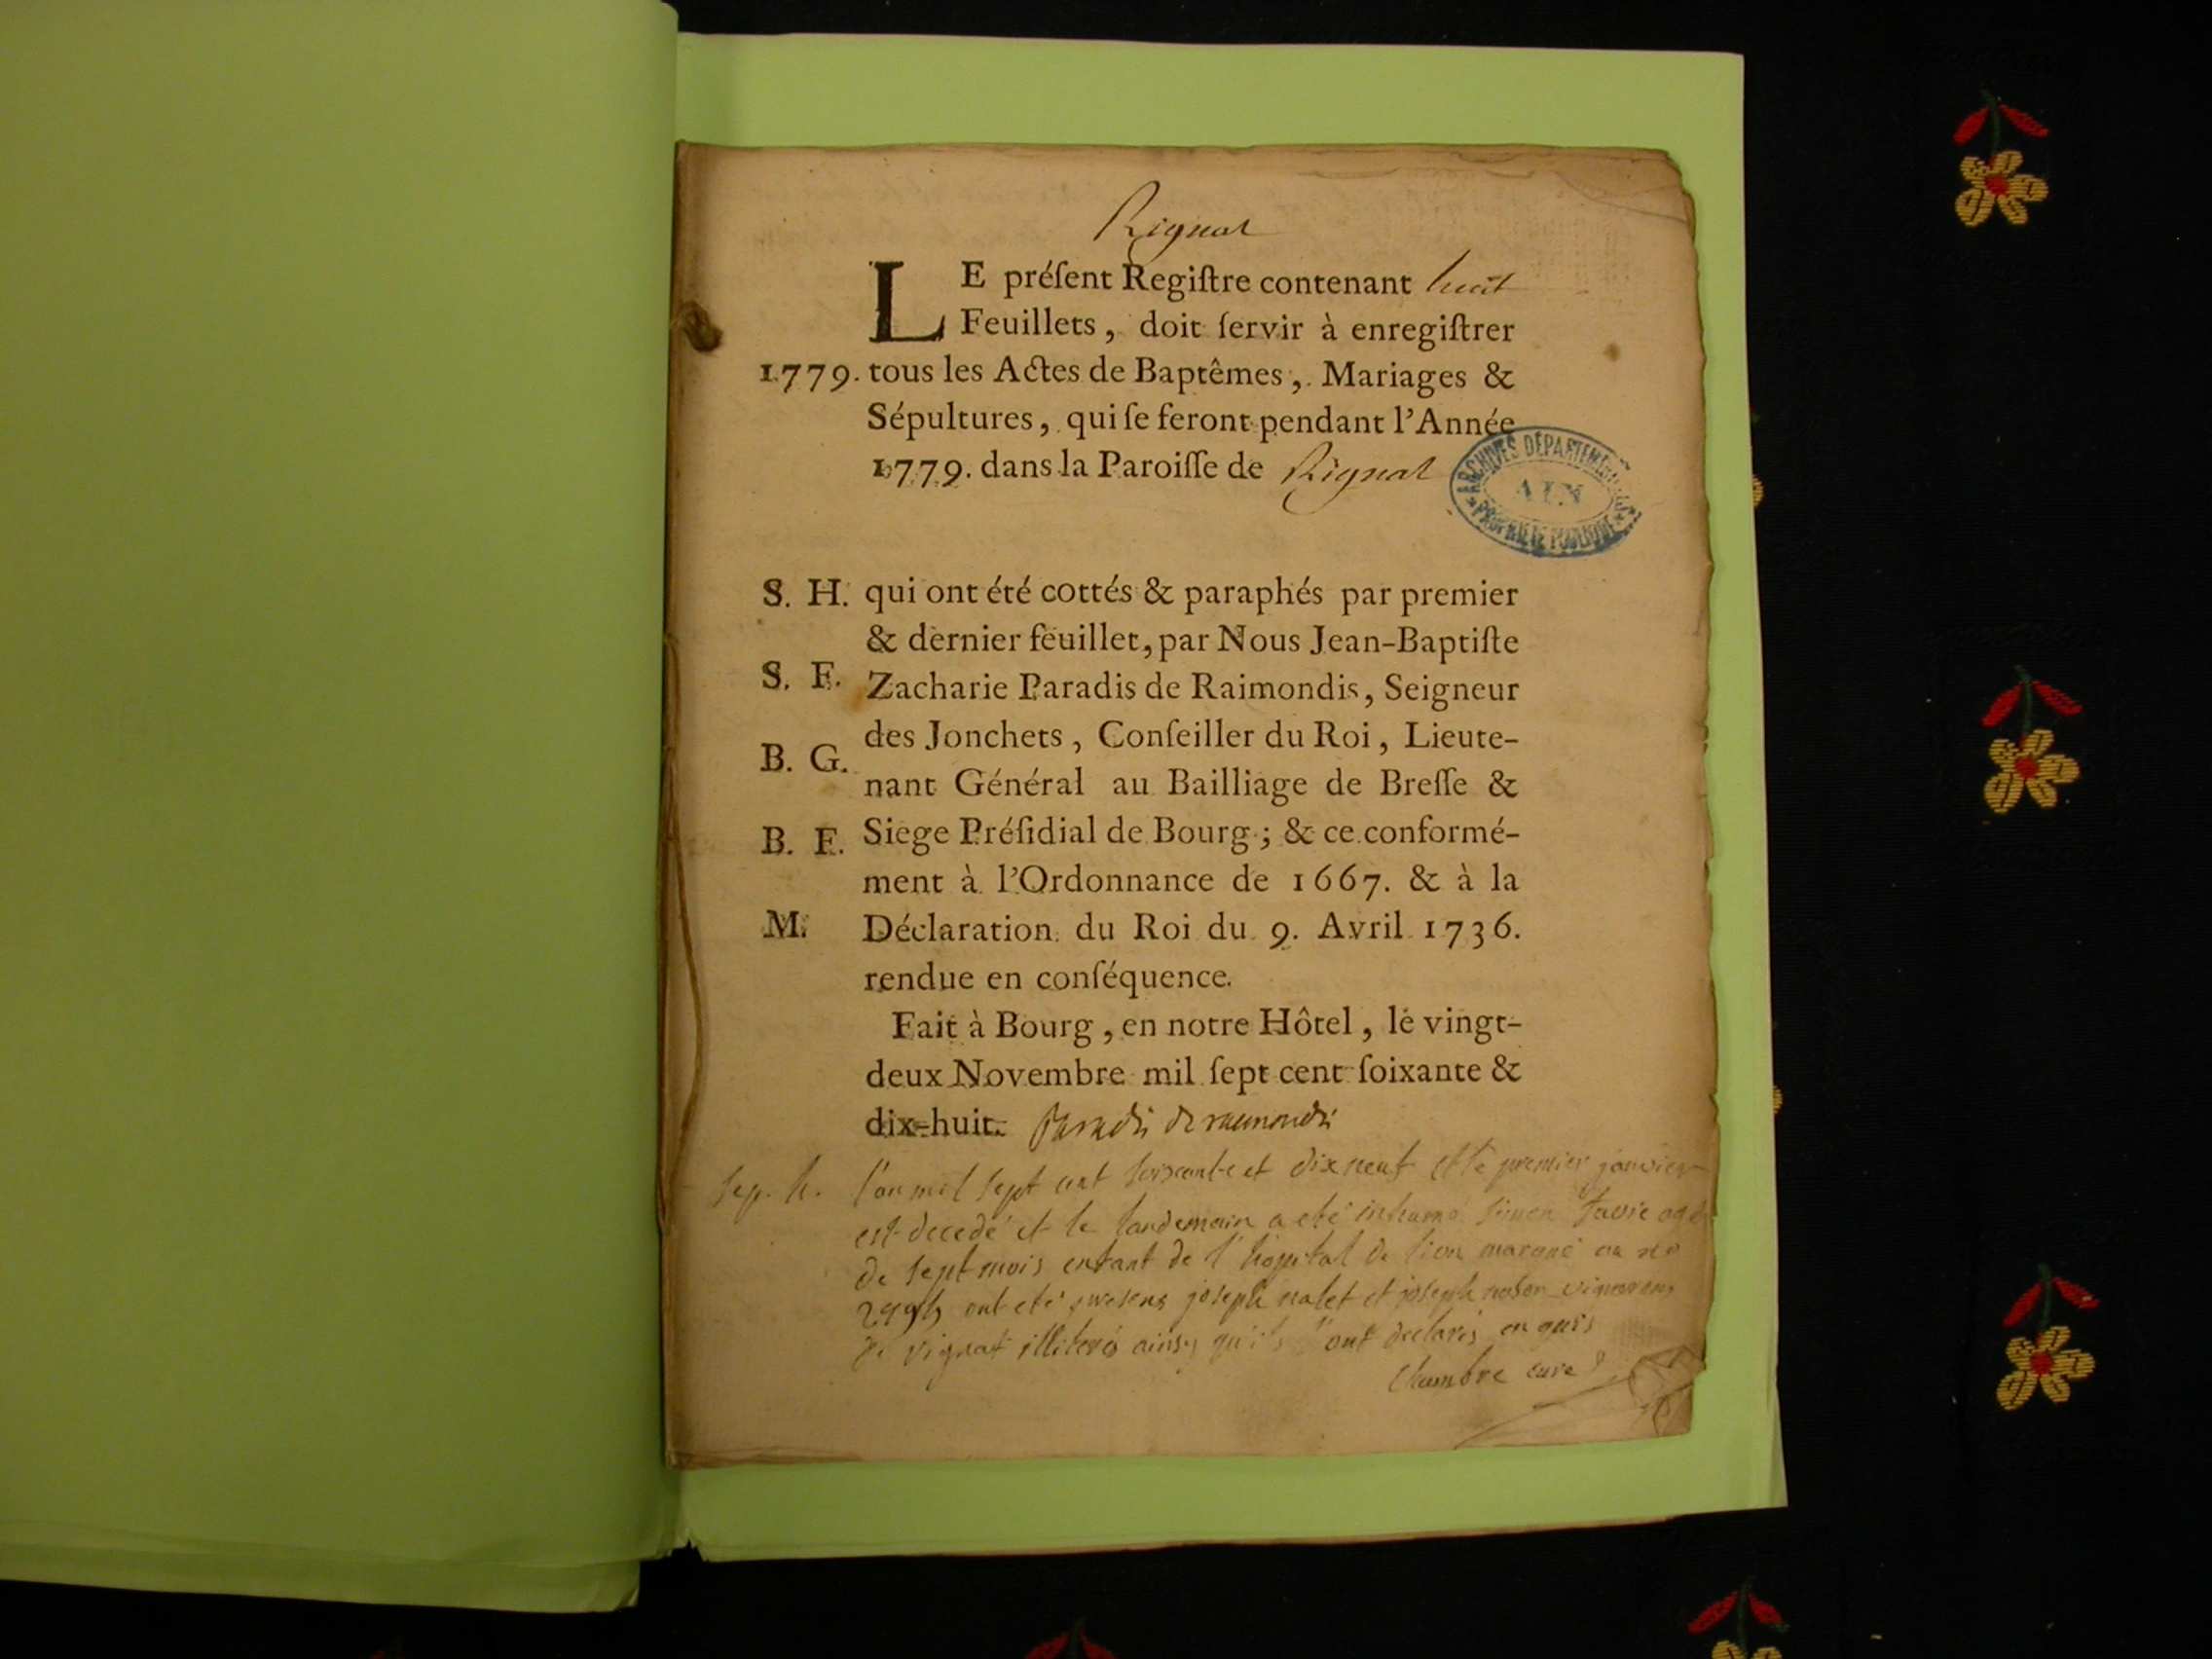 Rignat
LE préſent Regiſtre contenant huit
Feuillets, doit ſervir à enregiſtrer
1779. tous les Actes de Baptêmes, Mariages &
Sépultures, qui ſe feront pendant l'Année
1779. dans la Paroiſſe de Rignat
ARCHIVES DÉPARTEMENTALES
AIN
PROPRIÉTÉ PUBLIQUE
S. H. qui ont été cottés & paraphés par premier
& dernier feuillet, par Nous Jean-Baptiſte
S. F. Zacharie Paradis de Raimondis, Seigneur
des Jonchets, Conſeiller du Roi, Lieute-
B. G. nant Général au Bailliage de Breſſe &
B. F. Siege Préſidial de Bourg; & ce conformé-
ment à l'Ordonnance de 1667. & à la
M. Déclaration du Roi du 9. Avril 1736.
rendue en conſéquence.
Fait à Bourg, en notre Hôtel, le vingt-
deux Novembre mil ſept cent ſoixante &
dix-huit. Paradis de raimondis
Sep. h. l'an mil sept cent soixante et dix neuf et le premier janvier
est decedé et le landemain a eté inhumé
de sept mois enfant de l'hopital de lion marqué
ont eté presens joseph et joseph vignerons
de rignat illiterés ainsy qu'ils l'ont declarés enquis
Chambre curé